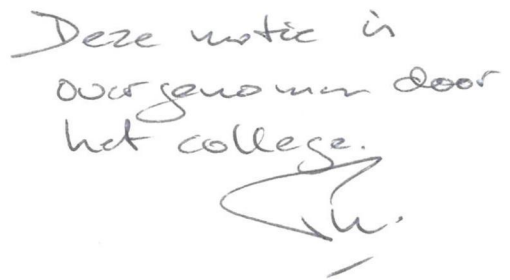 Deze motie is
overgenomen door
het college.